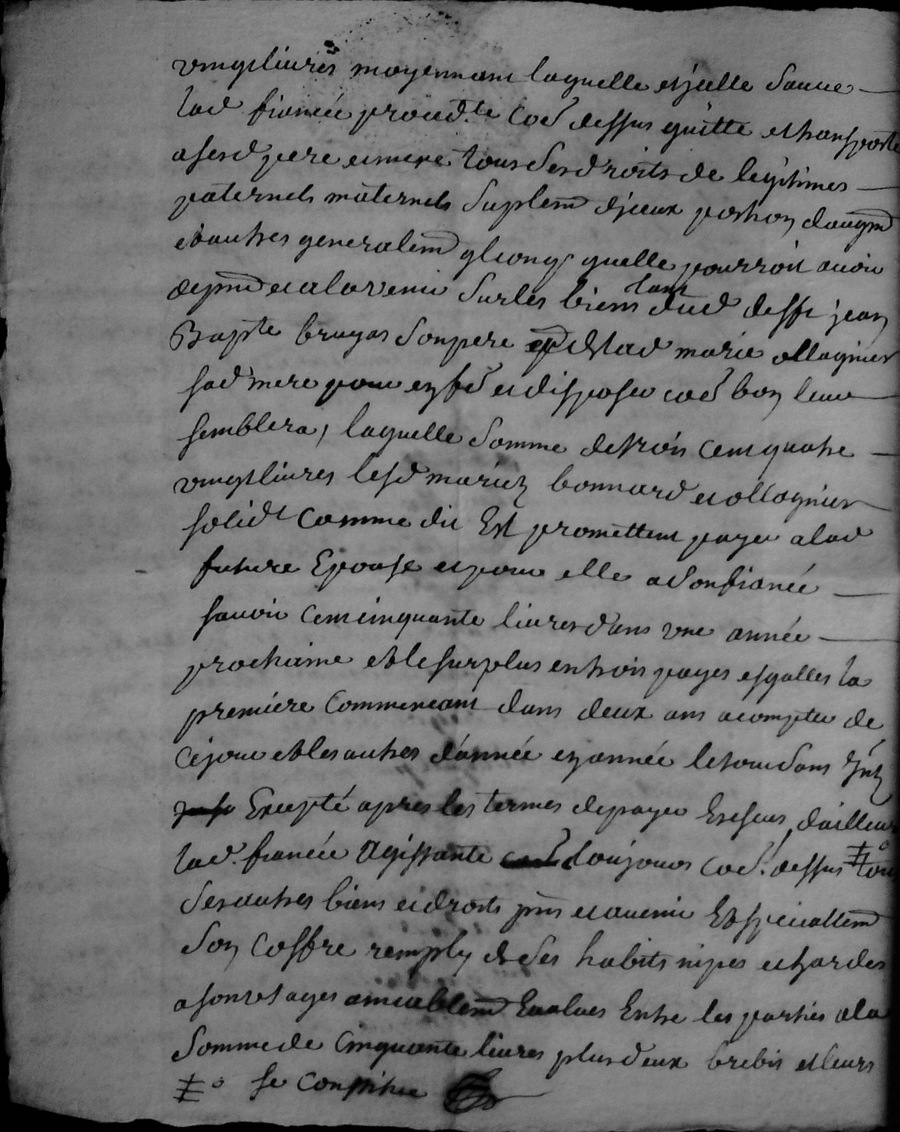 vingt livres moyennant laquelle et jcelle sauue
lad fiancée proced.te co.e dessus quitte et transporte
a sesd pere et mere tous ses droits de legitimes
paternels maternels suplem.t d'jceux portion d'augm.t
et autres generalem.t qlconqs quelle pourroit auoir
de pnt et a l'avenir sur les biens tant dud defft jean
Bapte bruyas son pere que de lad marie ollagnier
sad mere pour en fe et disposer co.e bon leur
semblera, laquelle somme de trois cent quatre
vingt livres lesd mariez bonnard et ollagnier
solidt comme dit Est promettent payer a lad
future Epouse et pour elle a son fiancé
sauoir cent cinquante livres dans vne année
prochaine et le surplus en trois payes esgalles la
premiere commencant dans deux ans a compter de
ce jour et les autres d'année en année le tout sans jnt
Excepté apres les termes de payer Escheus, d'ailleurs
lad. fiancée agissante toujours co.e dessus ‡o tous
ses autres biens et droits pns et auenir Et speciallem.t
son coffre remply de ses habits nipes et hardes
a son vsages amiablem.t Evalues Entre les parties a la
somme de cinquante livres plus deux brebis et leurs
‡o se constitue